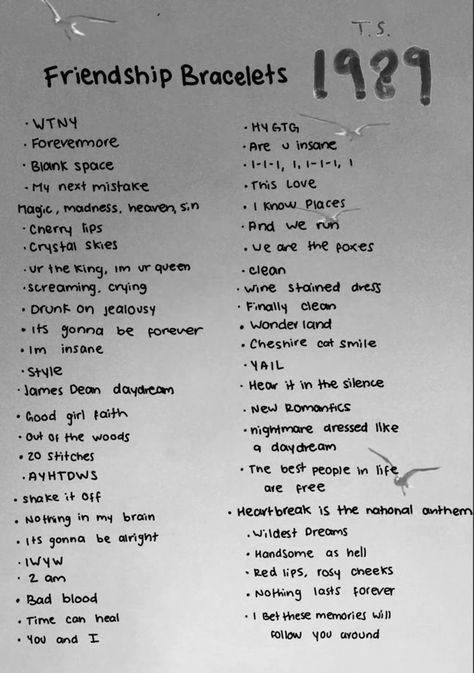 T.S.
Friendship Bracelets 1989
· WTNY
· Forevermore
· Blank space
· My next mistake
Magic, madness, heaven, sin
· Cherry lips
· Crystal skies
· ur the King, Im ur queen
· screaming, crying
· Drunk on jealousy
· Its gonna be forever
· Im insane
· Style
· James Dean daydream
· Good girl faith
· Out of the woods
· 20 stitches
· AYHTDWS
· Shake it Off
· Nothing in my brain
· Its gonna be alright
· IWYW
· 2 am
· Bad blood
· Time can heal
· You and I
· HYGTG
· Are u insane
· 1-1-1, 1, 1-1-1, 1
· This Love
· I Know Places
· And we run
· We are the foxes
· clean
· Wine stained dress
· Finally clean
· Wonderland
· Cheshire cat smile
· YAIL
· Hear it in the silence
· New Romantics
· nightmare dressed like
a daydream
· The best people in life
are free
· Heartbreak is the national anthem
· Wildest Dreams
· Handsome as hell
· Red lips, rosy cheeks
· Nothing lasts forever
· I Bet these memories will
follow you around